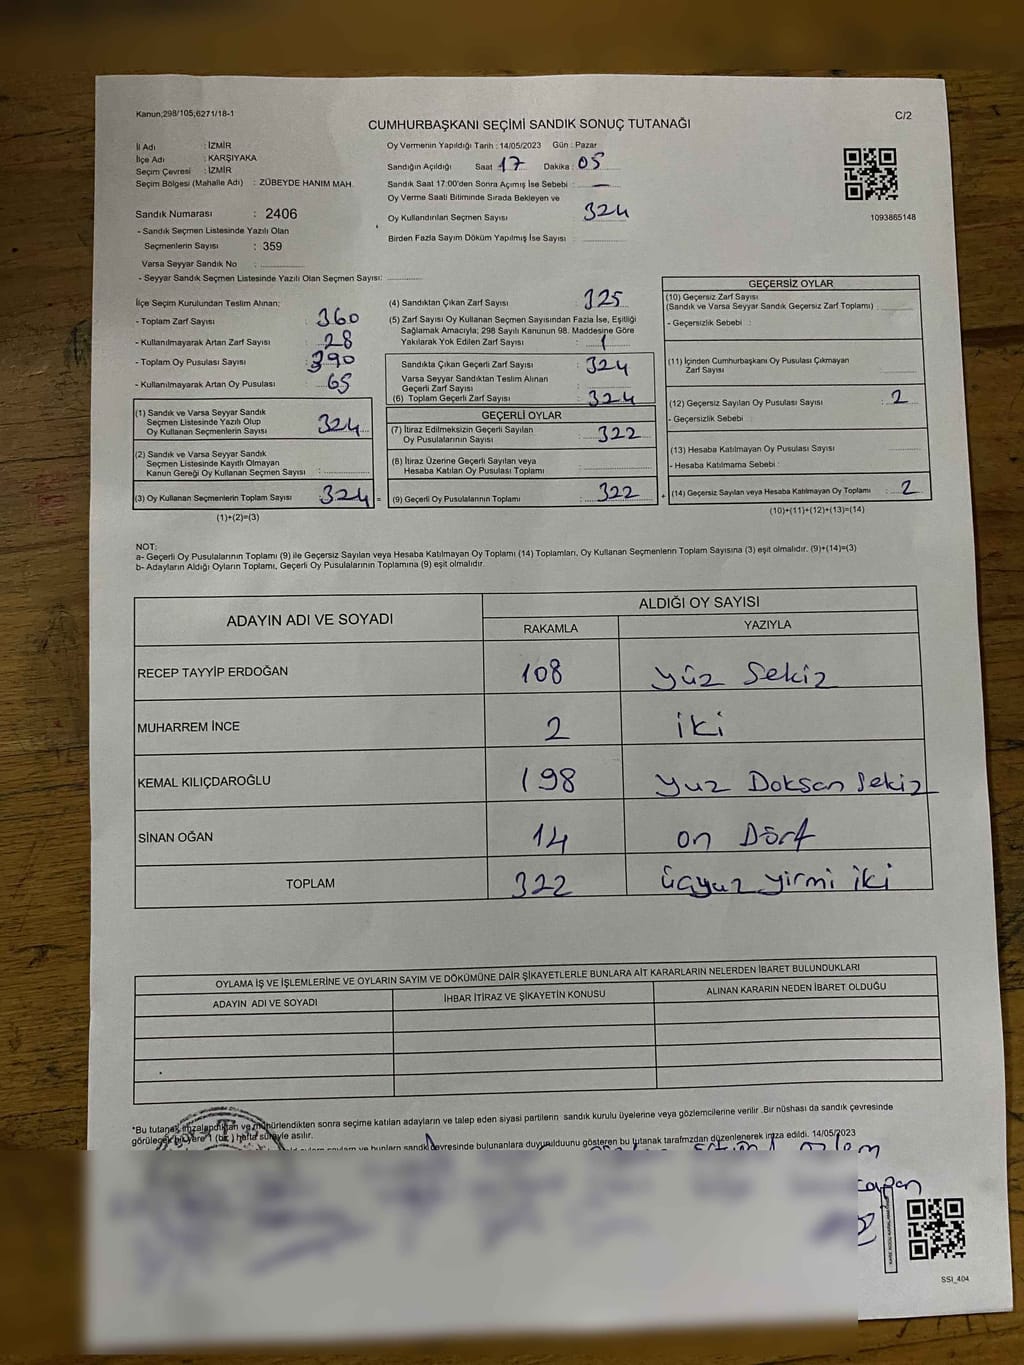 Kanun;298/105;6271/18-1
C/2
CUMHURBAŞKANI SEÇİMİ SANDIK SONUÇ TUTANAĞI
İl Adı : İZMİR
İlçe Adı : KARŞIYAKA
Seçim Çevresi : İZMİR
Seçim Bölgesi (Mahalle Adı) : ZÜBEYDE HANIM MAH.
Sandık Numarası : 2406
- Sandık Seçmen Listesinde Yazılı Olan
Seçmenlerin Sayısı : 359
Varsa Seyyar Sandık No :
- Seyyar Sandık Seçmen Listesinde Yazılı Olan Seçmen Sayısı:
Oy Vermenin Yapıldığı Tarih : 14/05/2023 Gün : Pazar
Sandığın Açıldığı Saat 17 Dakika : 05
Sandık Saat 17:00'den Sonra Açımış İse Sebebi : —
Oy Verme Saati Bitiminde Sırada Bekleyen ve
Oy Kullandırılan Seçmen Sayısı : 324
Birden Fazla Sayım Döküm Yapılmış İse Sayısı :
1093865148
İlçe Seçim Kurulundan Teslim Alınan;
- Toplam Zarf Sayısı : 360
- Kullanılmayarak Artan Zarf Sayısı : 28
- Toplam Oy Pusulası Sayısı : 390
- Kullanılmayarak Artan Oy Pusulası : 65
(1) Sandık ve Varsa Seyyar Sandık
Seçmen Listesinde Yazılı Olup
Oy Kullanan Seçmenlerin Sayısı : 324
(2) Sandık ve Varsa Seyyar Sandık
Seçmen Listesinde Kayıtlı Olmayan
Kanun Gereği Oy Kullanan Seçmen Sayısı :
(3) Oy Kullanan Seçmenlerin Toplam Sayısı 324 =
(1)+(2)=(3)
(4) Sandıktan Çıkan Zarf Sayısı : 325
(5) Zarf Sayısı Oy Kullanan Seçmen Sayısından Fazla İse, Eşitliği
Sağlamak Amacıyla; 298 Sayılı Kanunun 98. Maddesine Göre
Yakılarak Yok Edilen Zarf Sayısı : 1
Sandıkta Çıkan Geçerli Zarf Sayısı : 324
Varsa Seyyar Sandıktan Teslim Alınan
Geçerli Zarf Sayısı :
(6) Toplam Geçerli Zarf Sayısı : 324
GEÇERLİ OYLAR
(7) İtiraz Edilmeksizin Geçerli Sayılan
Oy Pusulalarının Sayısı : 322
(8) İtiraz Üzerine Geçerli Sayılan veya
Hesaba Katılan Oy Pusulası Toplamı :
(9) Geçerli Oy Pusulalarının Toplamı : 322 +
GEÇERSİZ OYLAR
(10) Geçersiz Zarf Sayısı
(Sandık ve Varsa Seyyar Sandık Geçersiz Zarf Toplamı) :
- Geçersizlik Sebebi :
(11) İçinden Cumhurbaşkanı Oy Pusulası Çıkmayan
Zarf Sayısı
(12) Geçersiz Sayılan Oy Pusulası Sayısı : 2
- Geçersizlik Sebebi
(13) Hesaba Katılmayan Oy Pusulası Sayısı
- Hesaba Katılmama Sebebi :
(14) Geçersiz Sayılan veya Hesaba Katılmayan Oy Toplamı : 2
(10)+(11)+(12)+(13)=(14)
NOT:
a- Geçerli Oy Pusulalarının Toplamı (9) ile Geçersiz Sayılan veya Hesaba Katılmayan Oy Toplamı (14) Toplamları, Oy Kullanan Seçmenlerin Toplam Sayısına (3) eşit olmalıdır. (9)+(14)=(3)
b- Adayların Aldığı Oyların Toplamı, Geçerli Oy Pusulalarının Toplamına (9) eşit olmalıdır.
ADAYIN ADI VE SOYADI ALDIĞI OY SAYISI
RAKAMLA YAZIYLA
RECEP TAYYİP ERDOĞAN 108 yüz Sekiz
MUHARREM İNCE 2 iki
KEMAL KILIÇDAROĞLU 198 yuz Doksan Sekiz
SİNAN OĞAN 14 on Dört
TOPLAM 322 üçyuz yirmi iki
OYLAMA İŞ VE İŞLEMLERİNE VE OYLARIN SAYIM VE DÖKÜMÜNE DAİR ŞİKAYETLERLE BUNLARA AİT KARARLARIN NELERDEN İBARET BULUNDUKLARI
ADAYIN ADI VE SOYADI İHBAR İTİRAZ VE ŞİKAYETİN KONUSU ALINAN KARARIN NEDEN İBARET OLDUĞU
*Bu tutanak imzalandıktan ve mühürlendikten sonra seçime katılan adayların ve talep eden siyasi partilerin sandık kurulu üyelerine veya gözlemcilerine verilir .Bir nüshası da sandık çevresinde
görülecek bir yere 1 (bir ) hafta süreyle asılır.
bunların sandık çevresinde bulunanlara duyurulduunu gösteren bu tutanak tarafımızdan düzenlenerek imza edildi. 14/05/2023
özlem
SSI_404